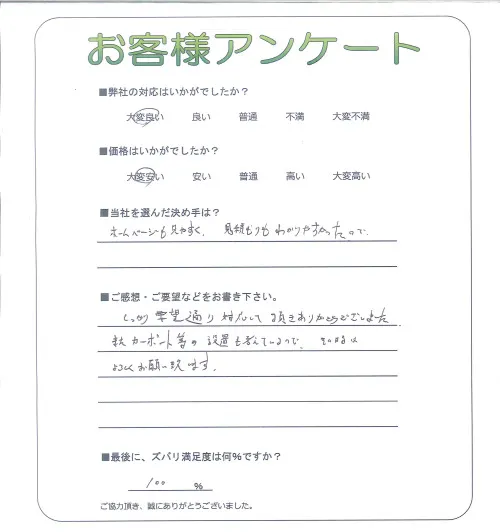 お客様アンケート
■弊社の対応はいかがでしたか？
大変良い 良い 普通 不満 大変不満
■価格はいかがでしたか？
大変安い 安い 普通 高い 大変高い
■当社を選んだ決め手は？
ホームページも見やすく、見積もりもわかりやすかったので。
■ご感想・ご要望などをお書き下さい。
しっかり要望通り対応して頂きありがとうございました
またカーポート等の設置も考えているので、その時は
よろしくお願い致します。
■最後に、ズバリ満足度は何%ですか？
100 %
ご協力頂き、誠にありがとうございました。